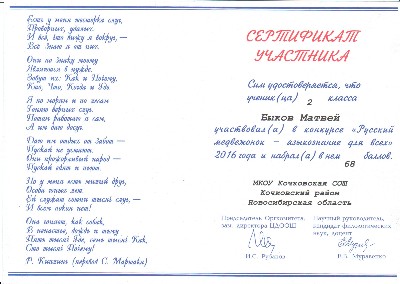 Есть у меня шестерка слуг,
Проворных, удалых.
И все, что вижу я вокруг, —
Всё знаю я от них.
Они по знаку моему
Являются в нужде.
Зовут их: Как и Почему,
Кто, Что, Когда и Где.
Я по морям и по лесам
Гоняю верных слуг.
Потом работаю я сам,
А им даю досуг.
Даю им отдых от забот —
Пускай не устают.
Они прожорливый народ —
Пускай едят и пьют.
Но у меня есть милый друг,
Особа юных лет.
Ей служат сотни тысяч слуг, —
И всем покоя нет!
Она гоняет, как собак,
В ненастье, дождь и тьму
Пять тысяч Где, семь тысяч Как,
Сто тысяч Почему!
Р. Киплинг (перевод С. Маршака)
СЕРТИФИКАТ
УЧАСТНИКА
Сим удостоверяется, что
ученик(ца) 2 класса
Быков Матвей
участвовал(а) в конкурсе «Русский
медвежонок – языкознание для всех»
2016 года и набрал(а) в нем 68 баллов.
МКОУ Кочковская СОШ
Кочковский район
Новосибирская область
Председатель Оргкомитета,
зам. директора ЦДООШ
И.С. Рубанов
Научный руководитель,
кандидат филологических
наук, доцент
Е.В. Муравенко